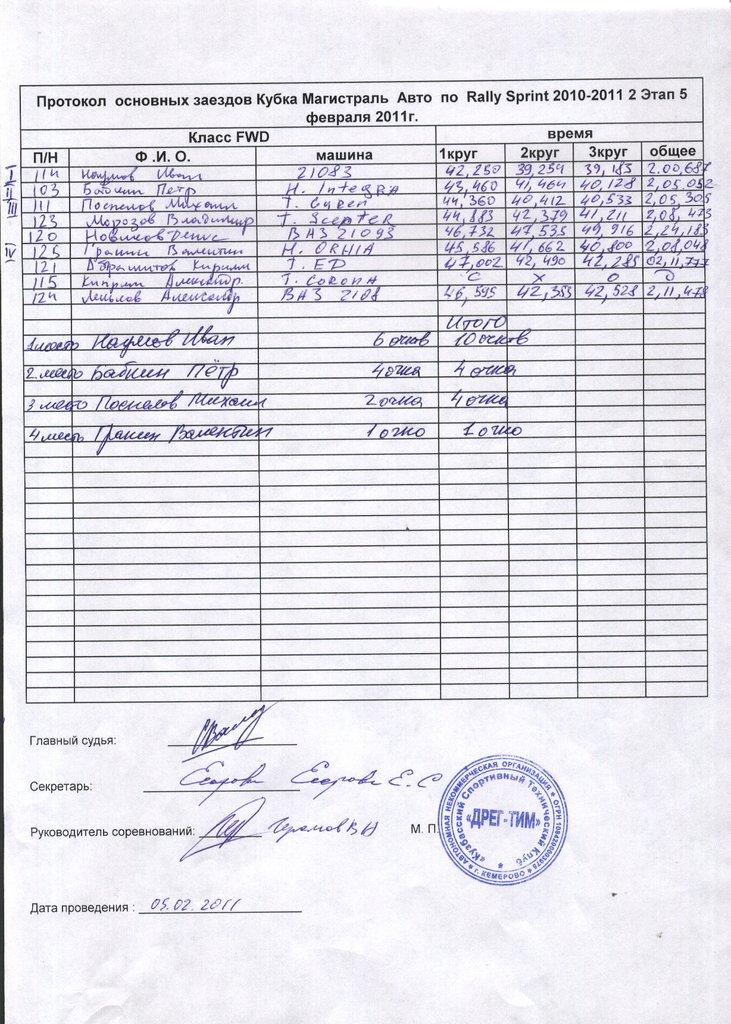 Протокол основных заездов Кубка Магистраль Авто по Rally Sprint 2010-2011 2 Этап 5
февраля 2011г.
Класс FWD время
П/Н Ф .И. О. машина 1круг 2круг 3круг общее
I 114 Наумов Иван 21083 42,250 39,254 39,183 2.00,687
II 103 Бабкин Петр H. Integra 43,460 41,464 40,128 2,05.052
III 111 Поспелов Михаил T. Curen 44,360 40,412 40,533 2,05,305
123 Морозов Владимир T. Scepter 44,883 42,379 41,211 2,08,473
120 Новиков Денис ВАЗ 21093 46,732 47,535 49,916 2,24,183
IV 125 Гранин Валентин H. ORHIA 45,586 41,662 40,800 2,08,048
121 Абрашитов Кирилл T. ED 47,002 42,490 42,285 02,11,777
115 Киприн Александр T. Corona С Х О Д
124 Александр ВАЗ 2108 46,595 42,355 42,528 2,11,478
Итого
1 место Наумов Иван 6 очков 10 очков
2 место Бабкин Пётр 4 очка 4 очка
3 место Поспелов Михаил 2 очка 4 очка
4 место Гранин Валентин 1 очко 1 очко
Главный судья:
Секретарь: Егорова Е.С
Руководитель соревнований: М. П.
Дата проведения : 05.02.2011
АВТОНОМНАЯ НЕКОММЕРЧЕСКАЯ ОРГАНИЗАЦИЯ
«Кузбасский Спортивный Технический Клуб
«ДРЕГ-ТИМ»
г. КЕМЕРОВО